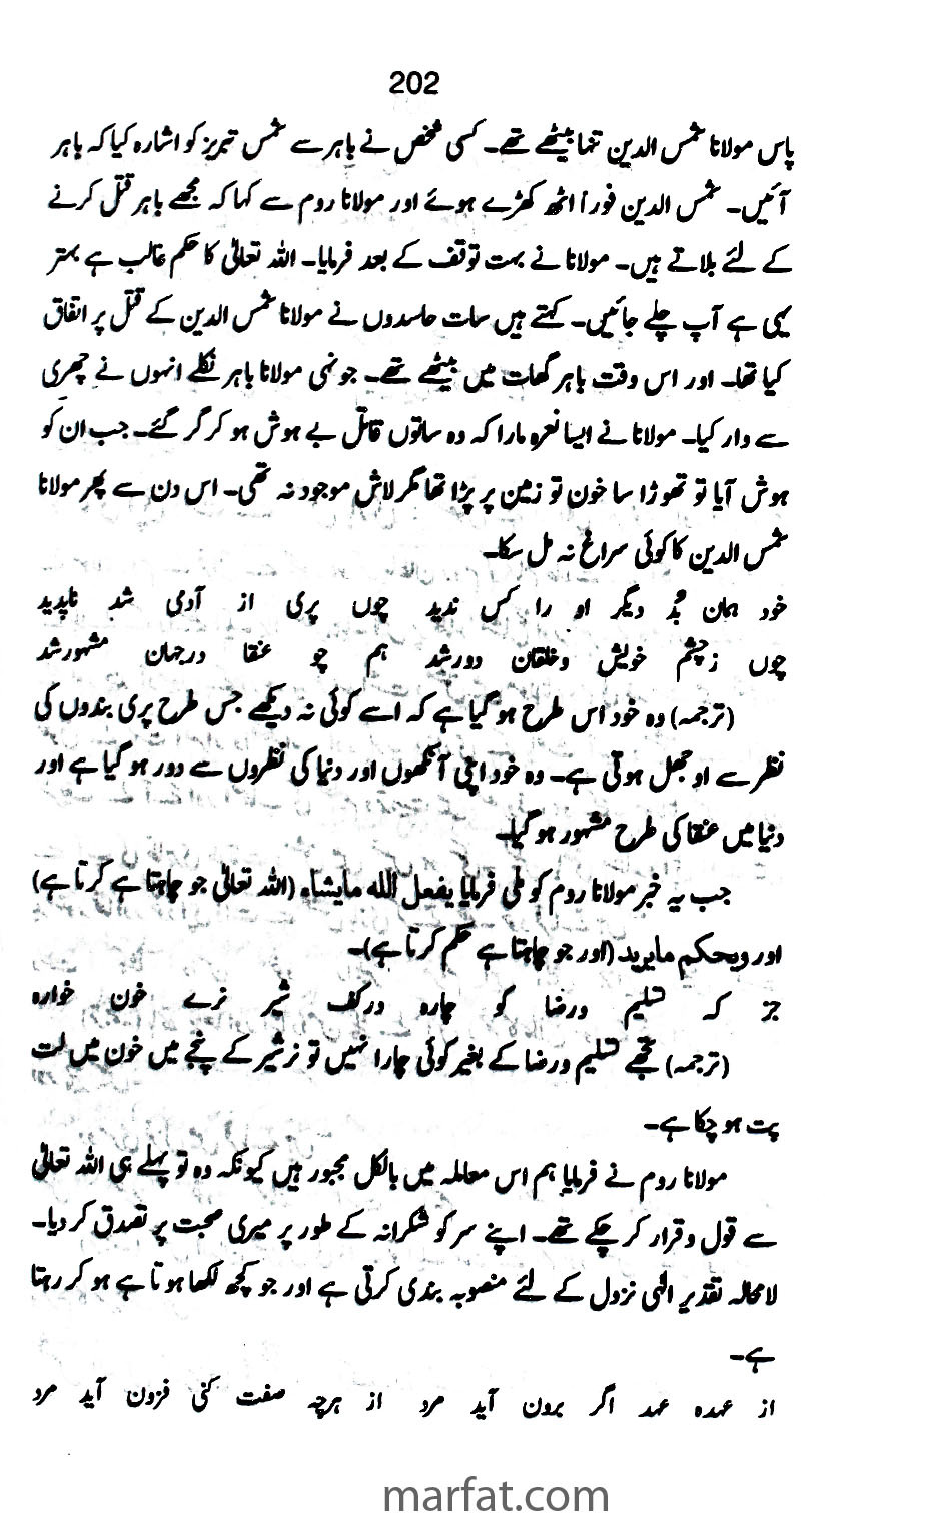 202
پاس مولانا شمس الدین تنہا بیٹھے تھے۔ کسی شخص نے باہر سے شمس تبریز کو اشارہ کیا کہ باہر
آئیں۔ شمس الدین فوراً اٹھ کھڑے ہوئے اور مولانا روم سے کہا کہ مجھے باہر قتل کرنے
کے لئے بلاتے ہیں۔ مولانا نے بہت توقف کے بعد فرمایا۔ اللہ تعالیٰ کا حکم غالب ہے بہتر
یہی ہے آپ چلے جائیں۔ کہتے ہیں سات حاسدوں نے مولانا شمس الدین کے قتل پر اتفاق
کیا تھا۔ اور اس وقت باہر گھات میں بیٹھے تھے۔ جونہی مولانا باہر نکلے انہوں نے چھری
سے وار کیا۔ مولانا نے ایسا نعرہ مارا کہ وہ ساتوں قاتل بے ہوش ہو کر گر گئے۔ جب ان کو
ہوش آیا تو تھوڑا سا خون تو زمین پر پڑا تھا مگر لاش موجود نہ تھی۔ اس دن سے پھر مولانا
شمس الدین کا کوئی سراغ نہ مل سکا۔
خود ہمان بُد دیگر او را کس ندید چوں پری از آدمی شد ناپدید
چوں زچشم خویش وخلقان دورشد ہم چو عنقا درجہان مشہورشد
(ترجمہ) وہ خود اس طرح ہو گیا ہے کہ اسے کوئی نہ دیکھے جس طرح پری بندوں کی
نظر سے اوجھل ہوتی ہے۔ وہ خود اپنی آنکھوں اور دنیا کی نظروں سے دور ہو گیا ہے اور
دنیا میں عنقا کی طرح مشہور ہو گیا۔
جب یہ خبر مولانا روم کو ملی فرمایا یفعل اللہ مایشاء (اللہ تعالیٰ جو چاہتا ہے کرتا ہے)
اور ویحکم مایرید (اور جو چاہتا ہے حکم کرتا ہے)۔
جز کہ تسلیم ورضا کو چارہ درکف شیر نرے خون خوارہ
(ترجمہ) تجھے تسلیم و رضا کے بغیر کوئی چارا نہیں تو نر شیر کے پنجے میں خون میں لت
پت ہو چکا ہے۔
مولانا روم نے فرمایا ہم اس معاملہ میں بالکل مجبور ہیں کیونکہ وہ تو پہلے ہی اللہ تعالیٰ
سے قول و قرار کر چکے تھے۔ اپنے سر کو شکرانہ کے طور پر میری محبت پر تصدق کر دیا۔
لامحالہ تقدیر الٰہی نزول کے لئے منصوبہ بندی کرتی ہے اور جو کچھ لکھا ہوتا ہے ہو کر رہتا
ہے۔
از عہدہ عہد اگر برون آید مرد از ہرچہ صفت کنی فزون آید مرد
marfat.com